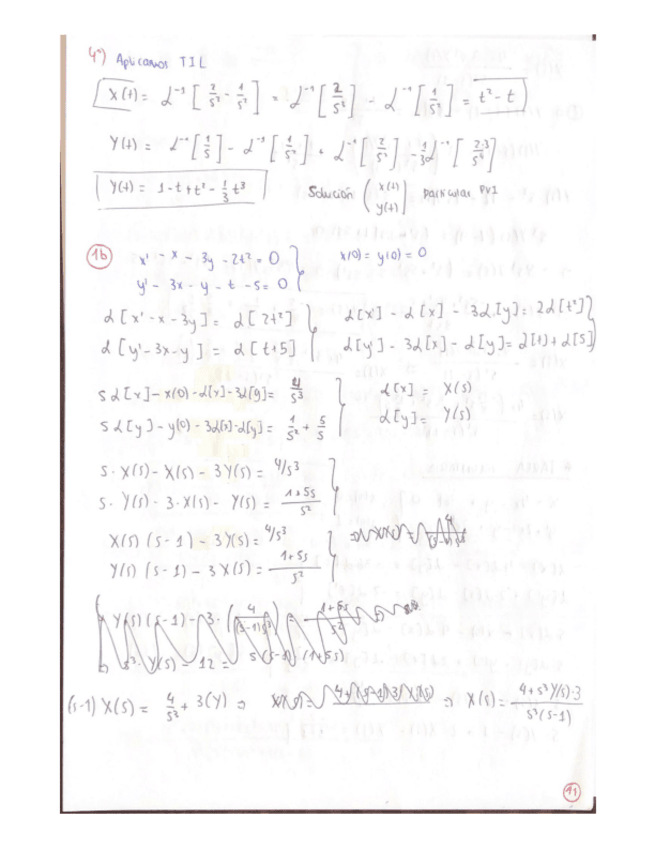 4º) Aplicamos TIL
X(t) = L⁻¹ [ 2/s³ - 1/s² ] = L⁻¹ [ 2/s³ ] - L⁻¹ [ 1/s² ] = t² - t
Y(t) = L⁻¹ [ 1/s ] - L⁻¹ [ 1/s² ] + L⁻¹ [ 2/s³ ] - 1/3 L⁻¹ [ 2·3/s⁴ ]
Y(t) = 1 - t + t² - 1/3 t³ Solución ( x(t) y(t) ) particular PVI
1b x' - x - 3y - 2t² = 0 x(0) = y(0) = 0
y' - 3x - y - t - 5 = 0
L[x' - x - 3y] = L[2t²] L[x'] - L[x] - 3L[y] = 2L[t²]
L[y' - 3x - y] = L[t+5] L[y'] - 3L[x] - L[y] = L[t] + L[5]
sL[x] - x(0) - L[x] - 3L[y] = 4/s³ L[x] = X(s)
sL[y] - y(0) - 3L[x] - L[y] = 1/s² + 5/s L[y] = Y(s)
s· X(s) - X(s) - 3Y(s) = 4/s³
s· Y(s) - 3·X(s) - Y(s) = 1+5s/s²
X(s) (s-1) - 3Y(s) = 4/s³
Y(s) (s-1) - 3X(s) = 1+5s/s²
Y(s) (s-1) - 3· ( 4/(s-1)s³ ) = 1+5s/s²
s³· Y(s) - 12 = s(s-1)·(1+5s)
(s-1) X(s) = 4/s³ + 3(Y) ⇒ ⇒ X(s) = 4+s³Y(s)·3/s³(s-1)
11